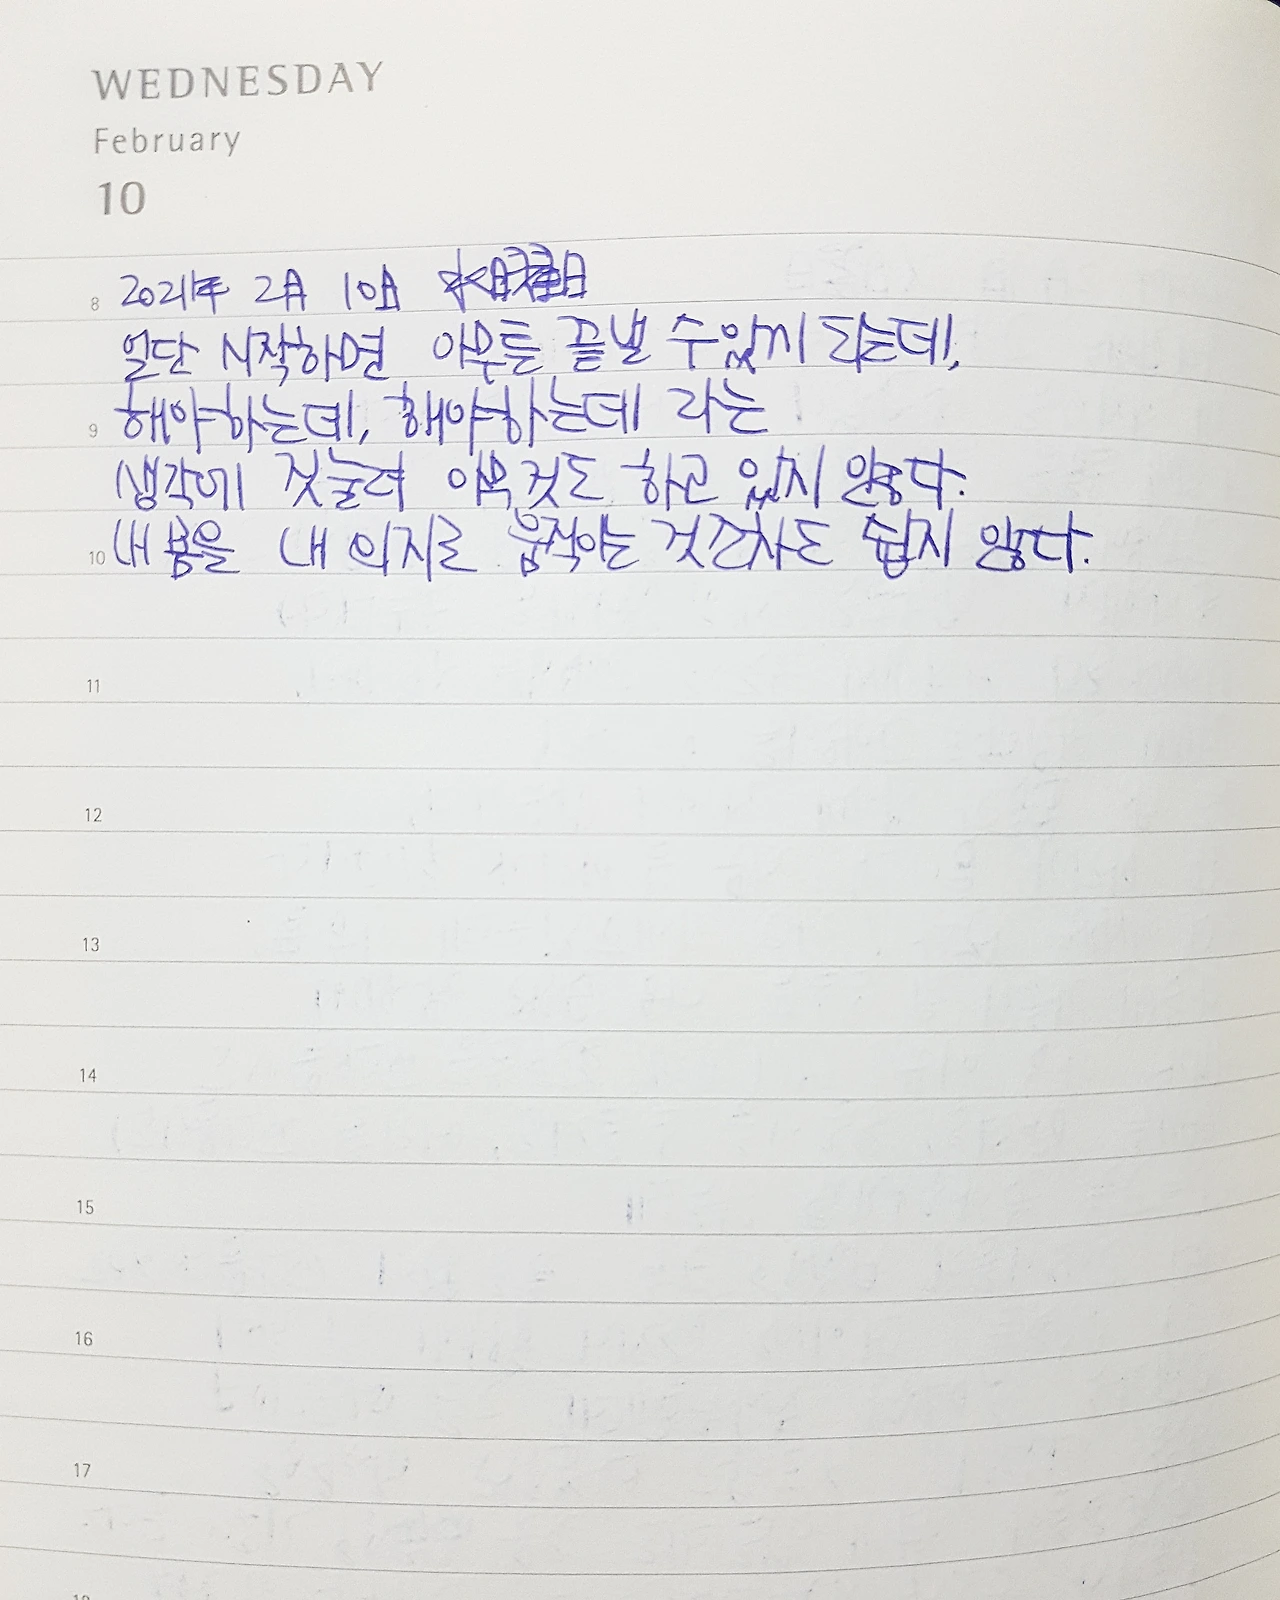 WEDNESDAY
February
10
8 2021年 2月 10日 水曜日
일단 시작하면 아무튼 끝낼 수있지 되는데,
9 해야하는데, 해야하는데 라는
생각에 짓눌려 아무것도 하고 있지 않다.
10 내 몸을 내 의지로 움직이는 것조차도 쉽지 않다.
11
12
13
14
15
16
17